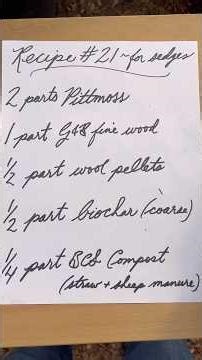 Recipe #21 ~ for sedges
2 parts Pittmoss
1 part G&B fine wood
1/2 part wool pellets
1/2 part biochar (coarse)
1/4 part BCS Compost
(straw + sheep manure)